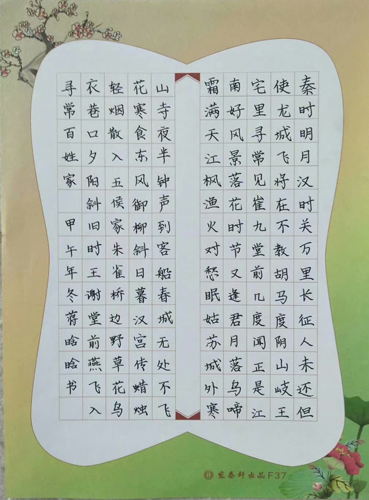 秦时明月汉时关万里长征人未还但
使龙城飞将在不教胡马度阴山岐王
宅里寻常见崔九堂前几度闻正是江
南好风景落花时节又逢君月落乌啼
霜满天江枫渔火对愁眠姑苏城外寒
山寺夜半钟声到客船春城无处不飞
花寒食东风御柳斜日暮汉宫传蜡烛
轻烟散入五侯家朱雀桥边野草花乌
衣巷口夕阳斜旧时王谢堂前燕飞入
寻常百姓家 甲午年冬蒋晗晗书
出品F37